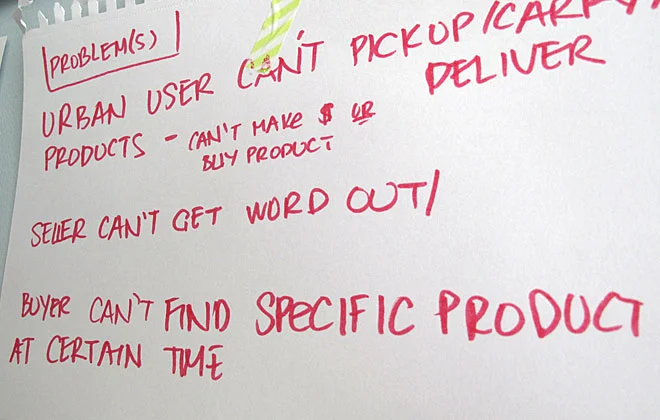 PROBLEM(S)
URBAN USER CAN'T PICKUP/CARRY/
DELIVER
PRODUCTS - CAN'T MAKE $ OR
BUY PRODUCT
SELLER CAN'T GET WORD OUT/
BUYER CAN'T FIND SPECIFIC PRODUCT
AT CERTAIN TIME